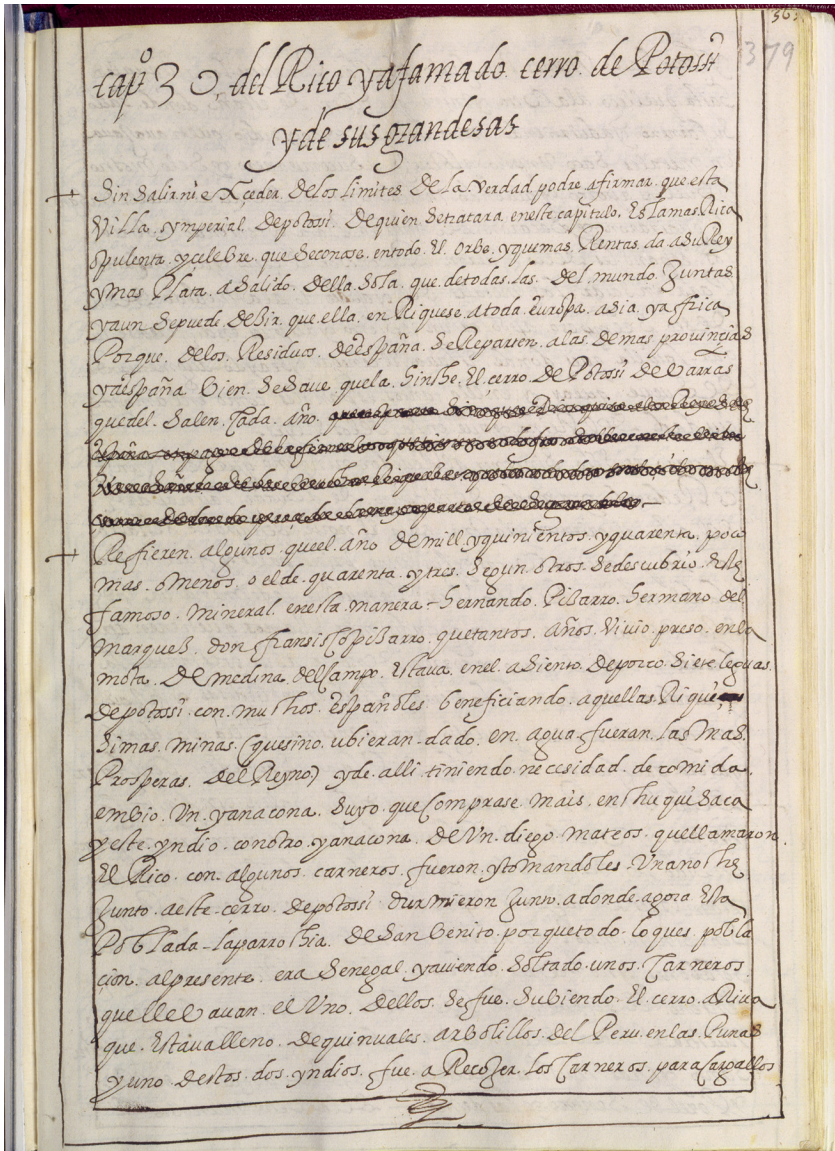 379
capº 30, del Rico y afamado cerro de Potossi
y de sus grandesas
Sin Salir ni exçeder de los limites de la verdad podre afirmar que esta
Villa ymperial de potossi de quien se tratara en este capitulo. Es la mas Rica
opulenta y celebre que se conose en todo El orbe y que mas Rentas da a Su Rey
y mas Plata a Salido della Sola que de todas las del mundo Juntas
y aun se puede desir que ella en Riquese a toda europa asia y africa
Porque de los Residuos de España Se Reparten a las demas provinçias
y a españa bien Se Saue que la hinche El cerro de Potossi de barras
que del Salen Cada año
Refieren algunos que el año de mill y quinientos y quarenta poco
mas o menos o el de quarenta y tres Segun otros Se descubrio Este
famoso mineral en esta manera - hernando Pisarro hermano del
marques don fransisco pisarro que tantos años viuio preso en la
mota de medina del Campo Estava en el asiento de porco Siete leguas
de potossi con muchos españoles beneficiando aquellas Riqui
simas minas (que si no ubieran dado en agua fueran las mas
Prosperas del Reyno) y de alli tiniendo necesidad de comida
embio Vn yanacona Suyo que Comprase mais en chuquisaca
y este yndio con otro yanacona de Vn diego mateos que llamaron
El Rico con algunos carneros fueron y tomandoles Vna noche
Junto a este cerro de potossi durmieron Junto a donde agora Esta
Poblada la parrochia de San benito porque todo lo que es pobla
çion al presente era Senegal y auiendo Soltado unos Carneros
que lleuauan el Vno dellos Se fue Subiendo El cerro arriua
que Estaua lleno de quinuales arbolillos del Peru en las Punas
y uno destos dos yndios fue a Recojer los Carneros para Cargallos